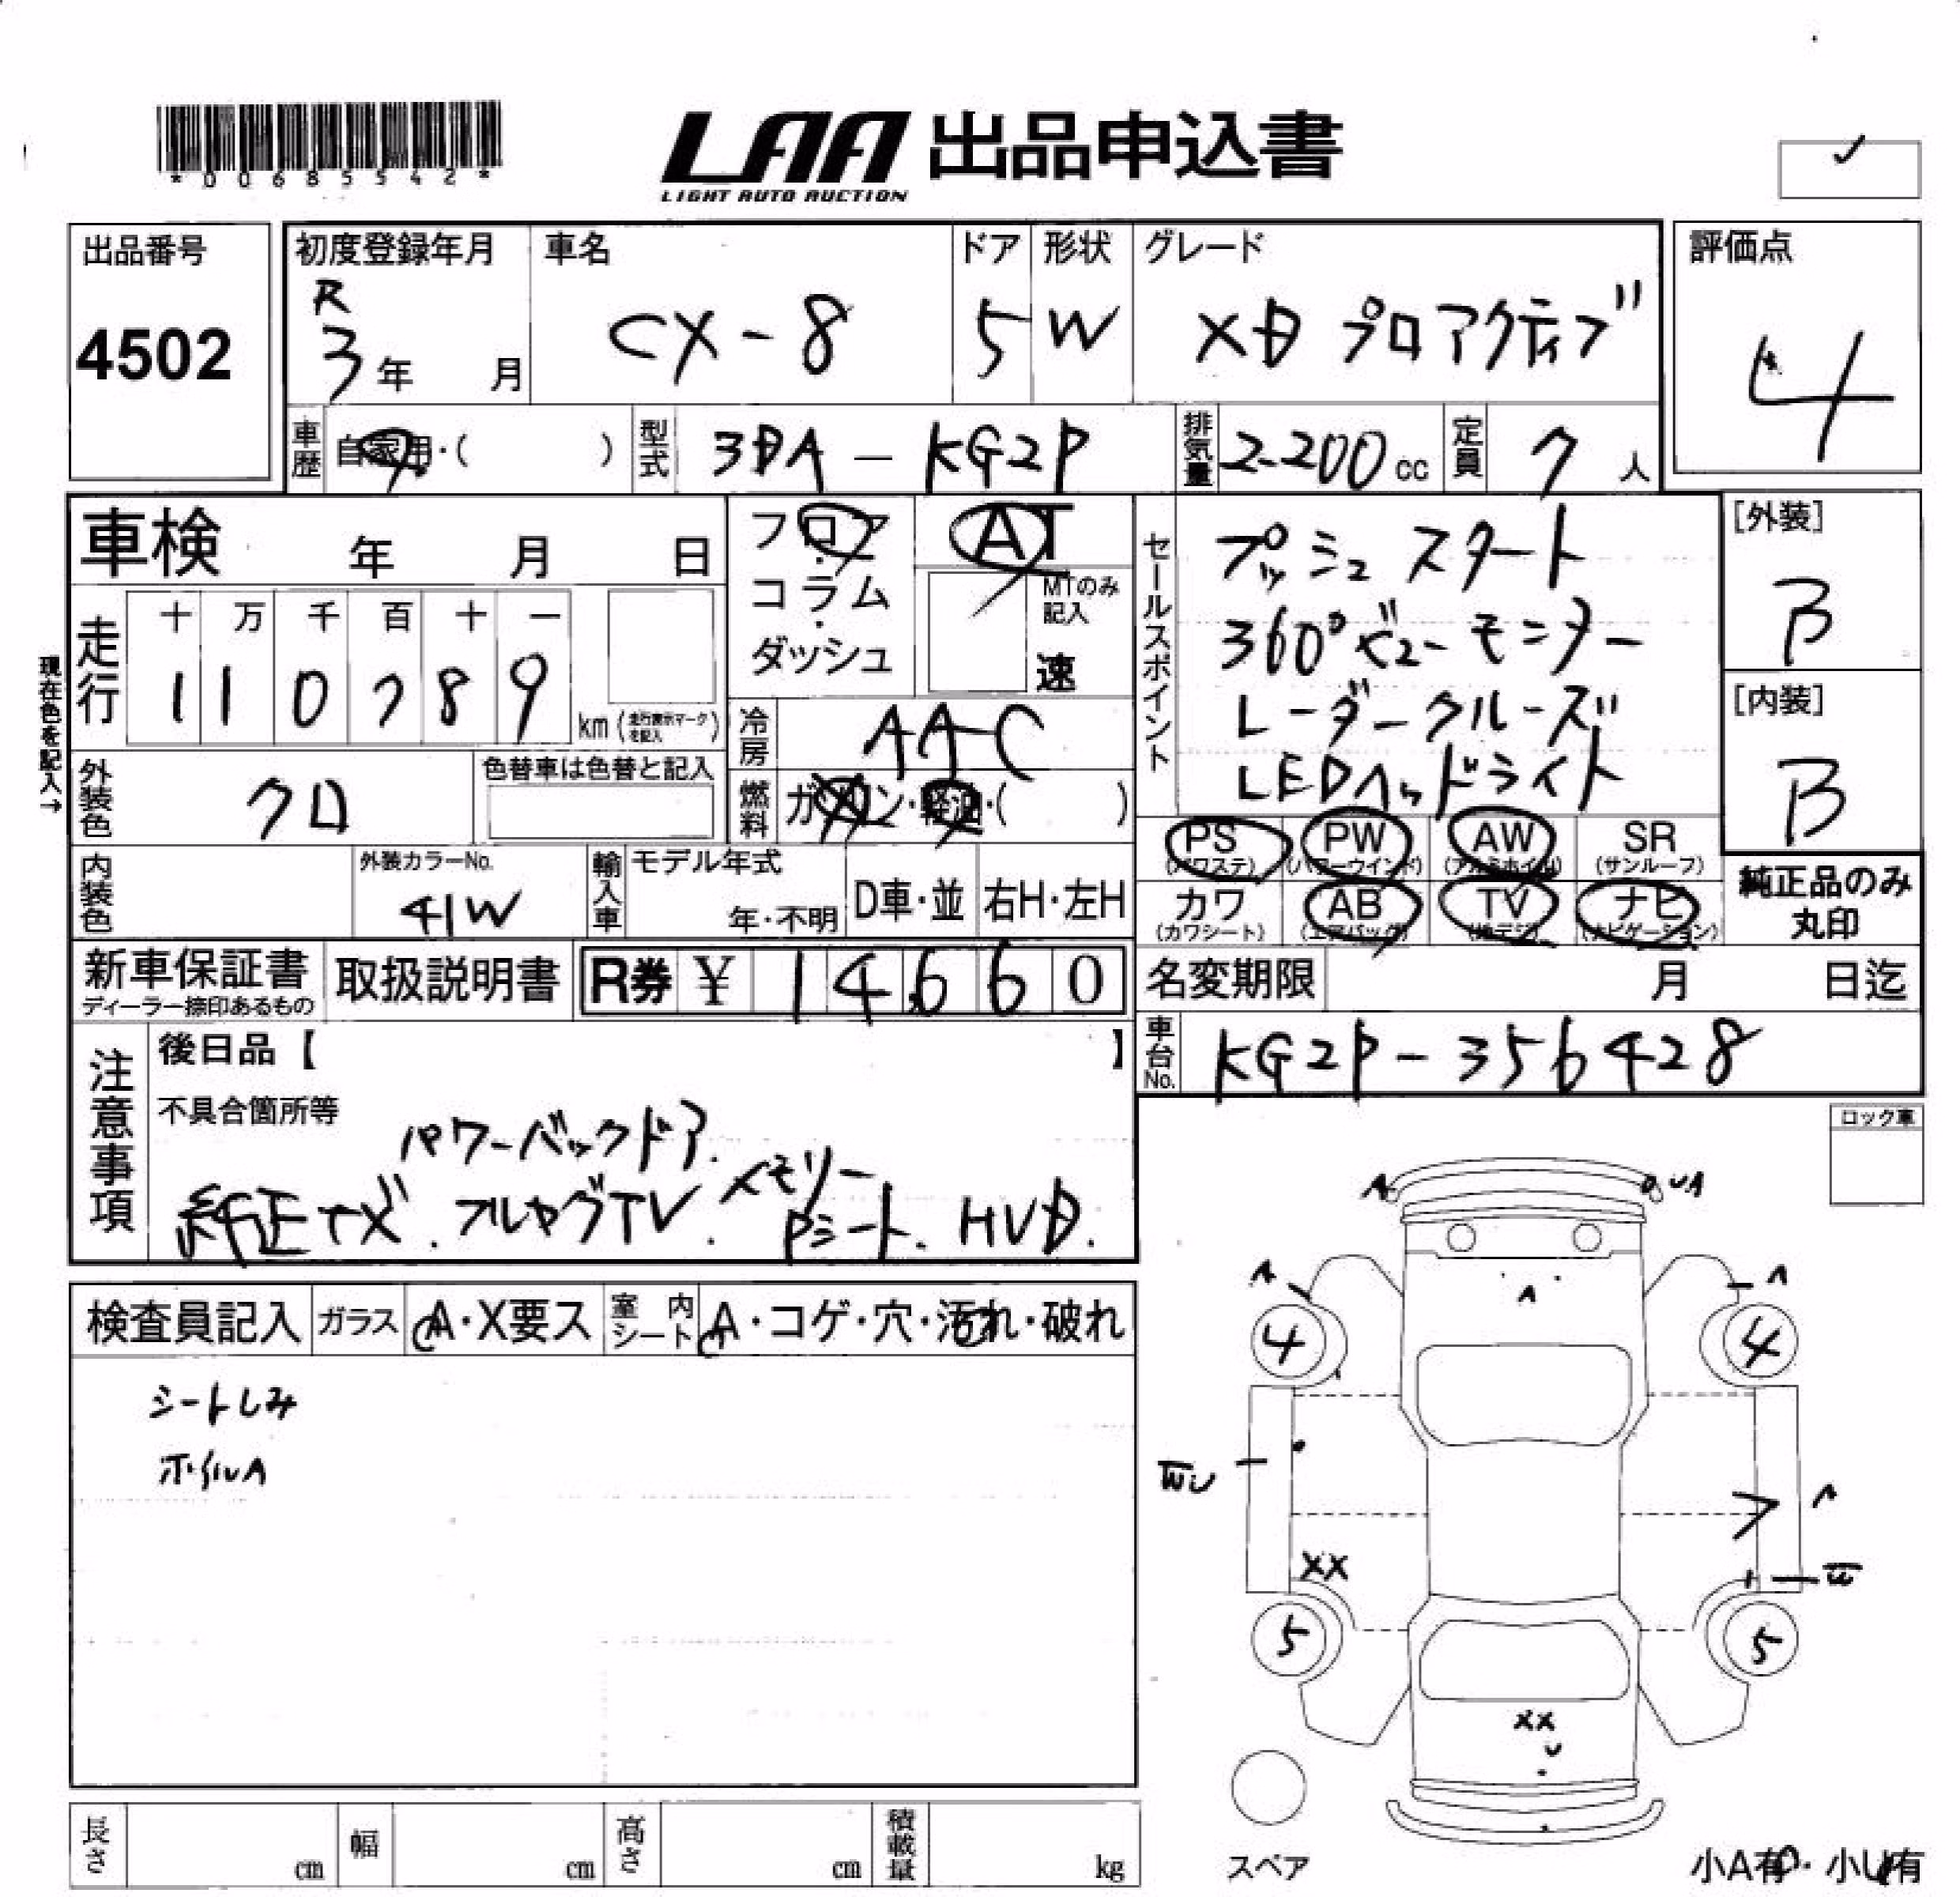 *0068542*
LAA 出品申込書
LIGHT AUTO AUCTION
出品番号
4502
初度登録年月
R
3年 月
車名
CX-8
ドア
5
形状
W
グレード
XD プロアクティブ
評価点
4
車歴
自家用・( )
型式
3DA-KG2P
排気量
2-200cc
定員
7人
車検 年 月 日
フロア・コラム・ダッシュ
AT
MTのみ記入
速
セールスポイント
プッシュスタート
360°ビューモニター
レーダークルーズ
LEDヘッドライト
[外装]
B
[内装]
B
現在色を記入→
走行
十 万 千 百 十 一
1 1 0 7 8 9
km(走行表示マークを記入)
冷房
AAC
外装色
クロ
色替車は色替と記入
燃料
ガソリン・軽油・( )
PS
(パワステ)
PW
(パワーウインド)
AW
(アルミホイル)
SR
(サンルーフ)
内装色
外装カラーNo.
41W
輸入車
モデル年式
年・不明
D車・並
右H・左H
カワ
(カワシート)
AB
(エアバッグ)
TV
(地デジ)
ナビ
(ナビゲーション)
純正品のみ
丸印
新車保証書
ディーラー捺印あるもの
取扱説明書
R券 ¥ 14,660
名変期限 月 日迄
車台No.
KG2P-356428
注意事項
後日品【 】
不具合箇所等
パワーバックドア.
純正ナビ. フルセグTV. メモリーPシート. HUD.
ロック車
検査員記入
ガラス
A・X要ス
室内シート
A・コゲ・穴・汚れ・破れ
シートしみ
ホイルA
A
UA
A
A
A
4
4
A
XX
5
5
XX
U
スペア
小A有・小U有
長さ cm
幅 cm
高さ cm
積載量 kg